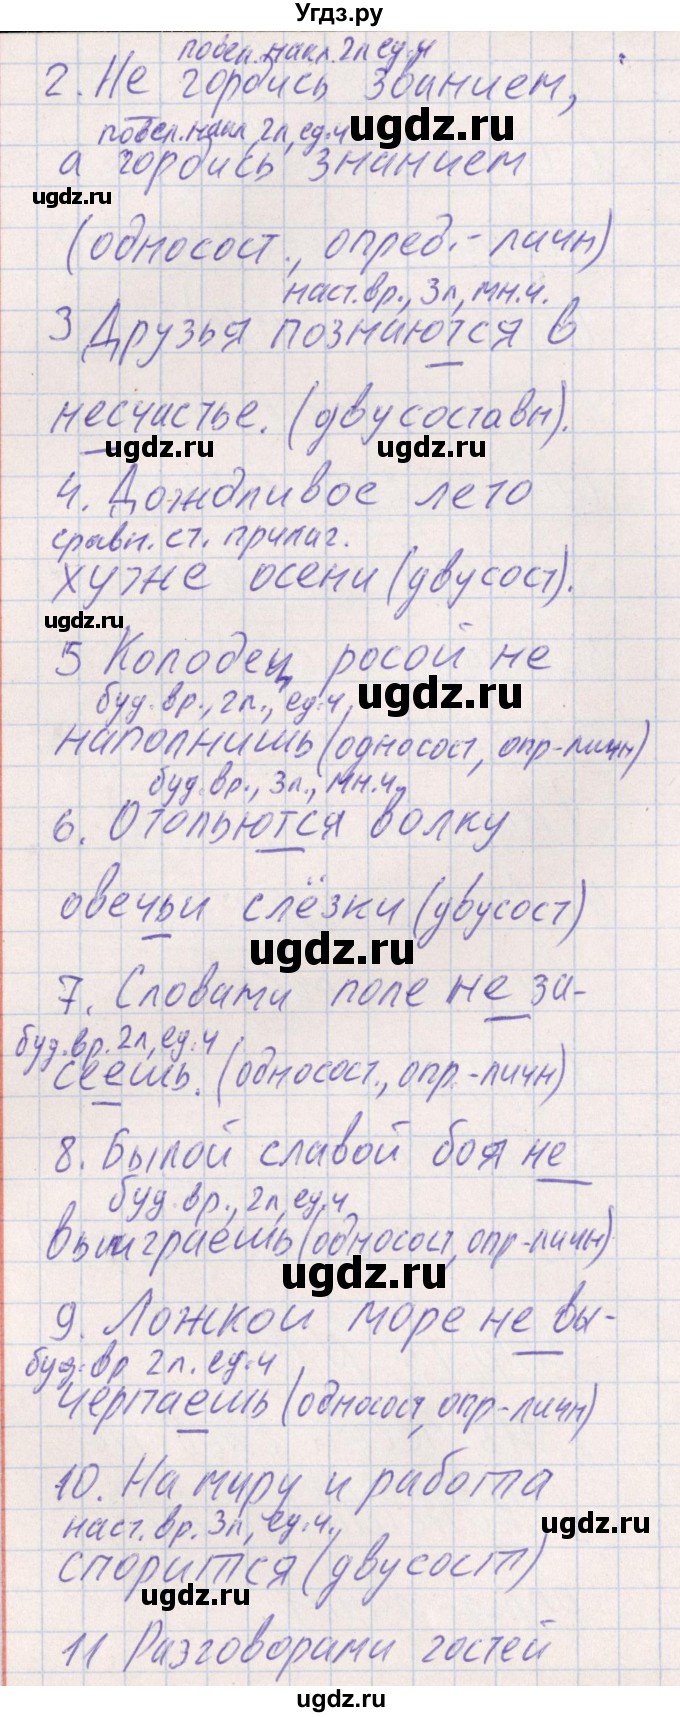 Угдз.ру
повел.накл. 2л ед.ч
2. Не гордись званием,
повел.накл, 2л, ед.ч
а гордись знанием
(односост., опред.-личн)
наст.вр., 3л, мн.ч.
3 Друзья познаются в
несчастье. (двусоставн).
4. Дождливое лето
сравн. ст. прилаг.
хуже осени (двусост).
5 Колодец росой не
буд. вр., 2л., ед.ч
наполнишь (односост, опр-личн)
буд.вр., 3л., мн.ч.
6. Отольются волку
овечьи слёзки (двусост)
7. Словами поле не за-
буд.вр. 2л, ед.ч
сеешь. (односост., опр.-личн)
8. Былой славой боя не
буд.вр., 2л, ед.ч
выиграешь (односост, опр-личн)
9. Ложкой море не вы-
буд.вр 2л. ед.ч
черпаешь (односост, опр-личн)
10. На миру и работа
наст. вр. 3л, ед.ч.
спорится (двусост)
11 Разговорами гостей
ugdz.ru
ugdz.ru
ugdz.ru
ugdz.ru
ugdz.ru
ugdz.ru
ugdz.ru
ugdz.ru
ugdz.ru
ugdz.ru
ugdz.ru
ugdz.ru
ugdz.ru